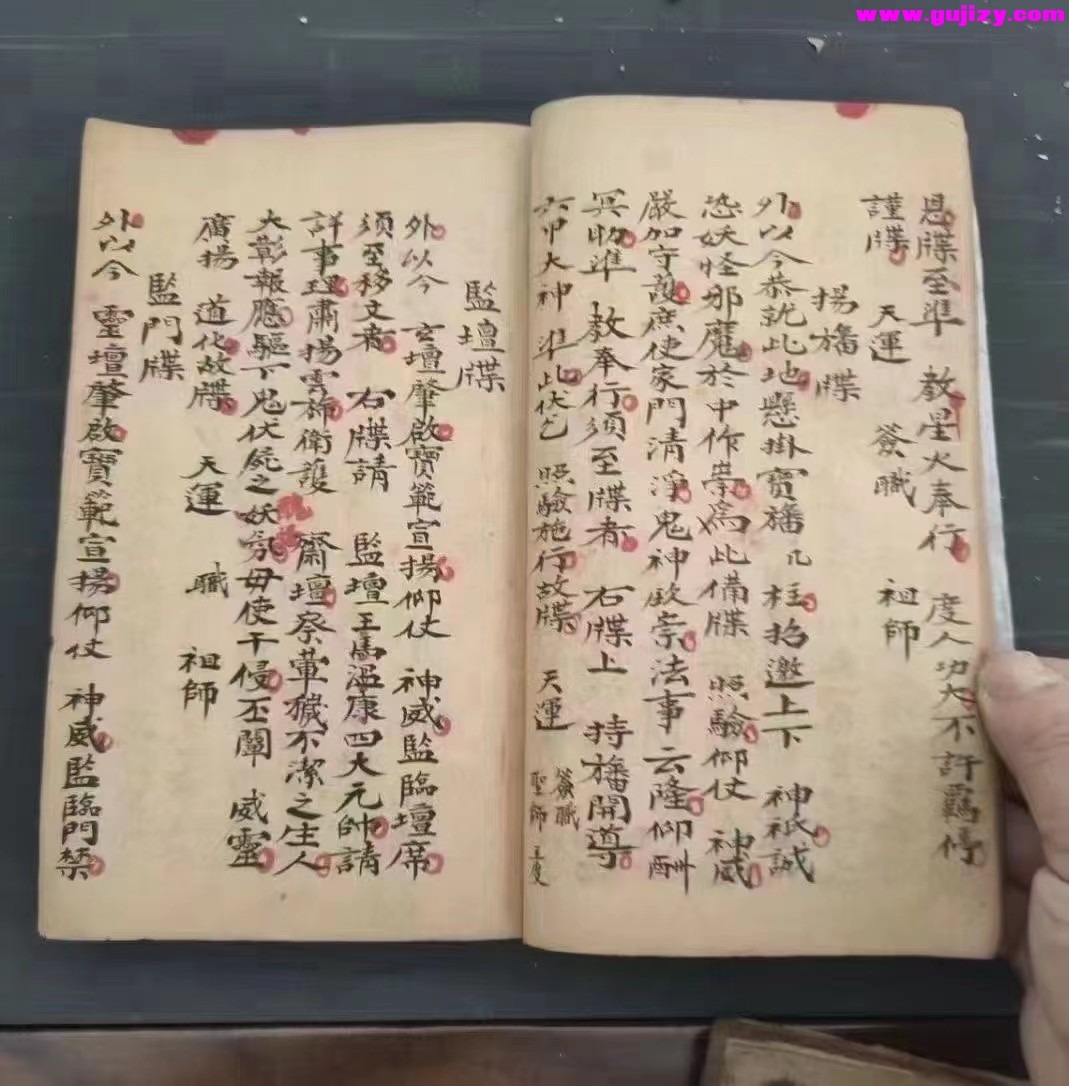 www.gujizy.com
恩牒至準 教星火奉行 度人功大不許羈停
謹牒 天運 簽職 祖師
揚旛牒
外以今恭就此地懸掛寶旛几柱掐邀上下 神祇誠
恐妖怪邪魔於中作祟為此備牒 照驗仰仗 神威
嚴加守護庶使家門清淨鬼神欽崇法事云隆仰酬
冥助準 教奉行須至牒者 右牒上 持旛開導
六甲大神 準此伏乞 照驗施行故牒 天運 簽職 聖師
監壇牒
外以今 玄壇肇啟寶範宣揚仰仗 神威監臨壇席
須至移文者 右牒請 監壇王馬溫康四大元帥請
詳事理肅揚雲旆衛護 齋壇祭葷穢不潔之生人
大彰報應驅下鬼伏屍之妖氛毋使干侵丕闡 威靈
廣揚 道化故牒 天運 職 祖師
監門牒
外以今 靈壇肇啟寶範宣揚仰仗 神威監臨門禁